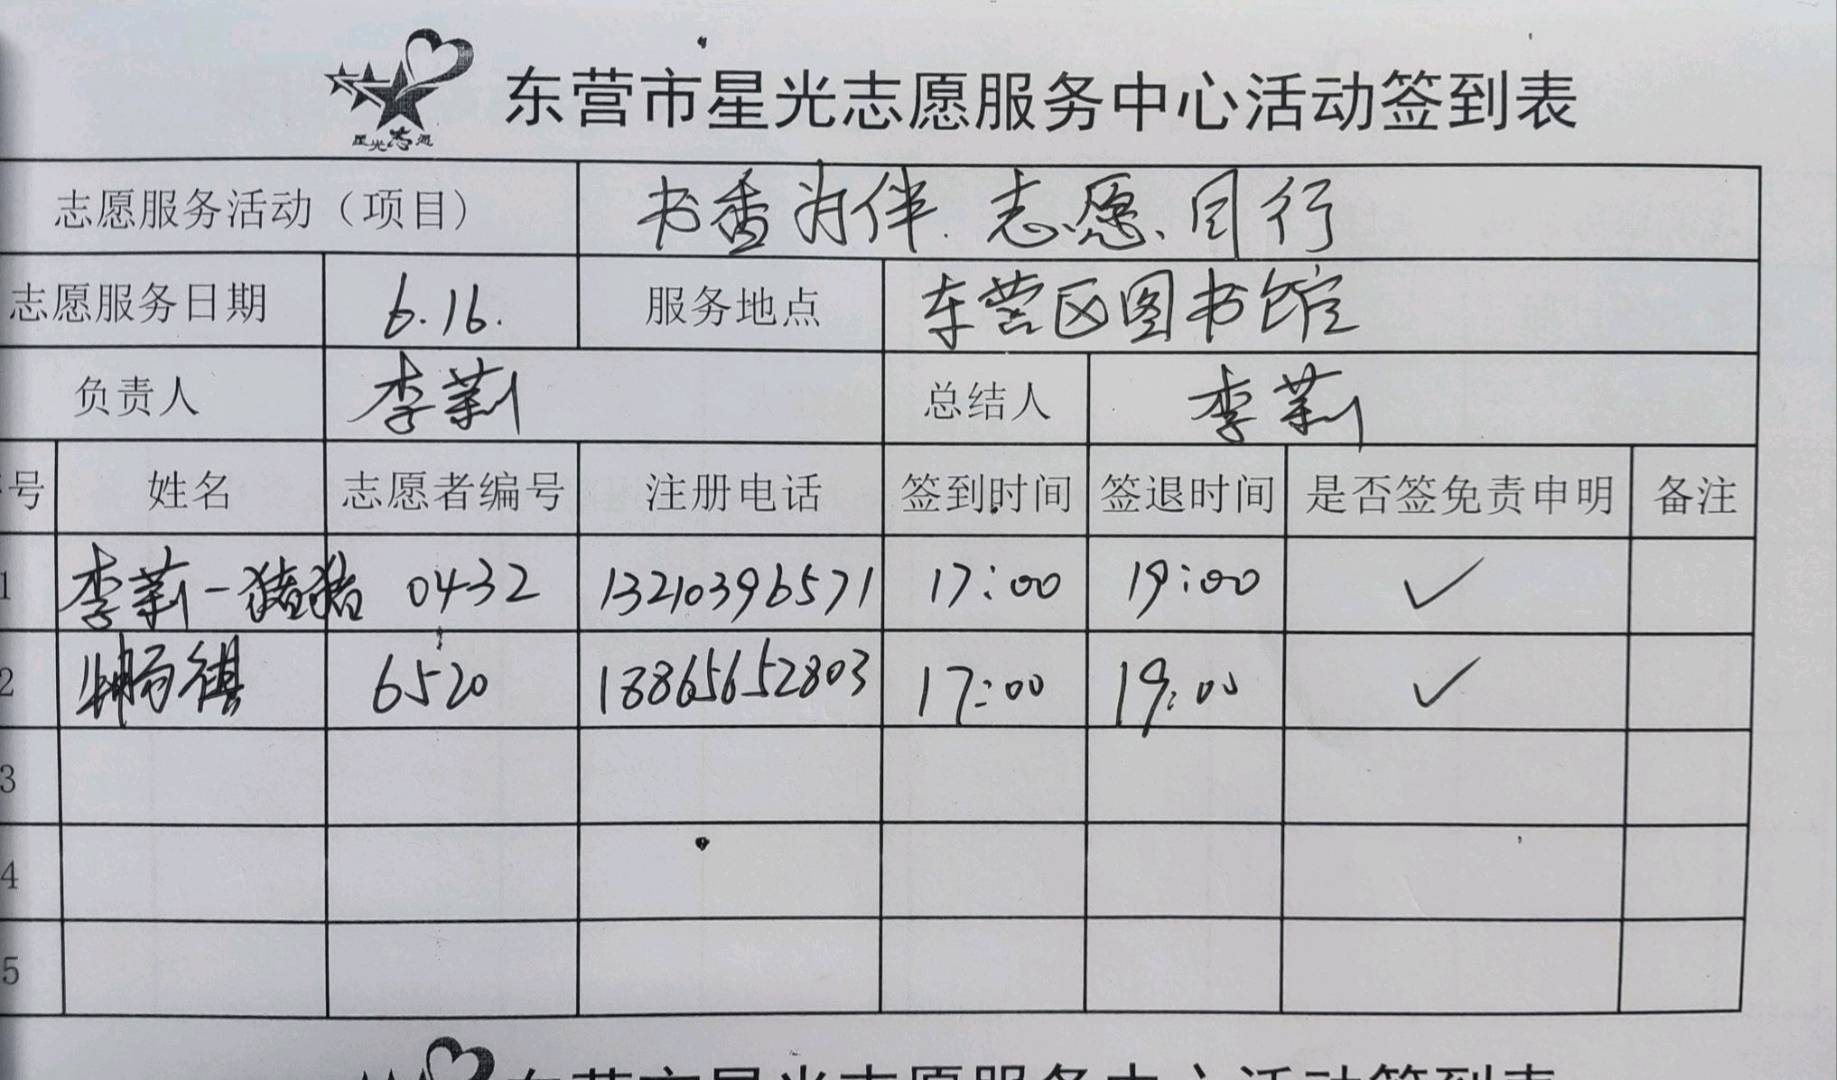 星光志愿
东营市星光志愿服务中心活动签到表
志愿服务活动（项目） 书香为伴 志愿同行
志愿服务日期 6.16. 服务地点 东营区图书馆
负责人 李莉 总结人 李莉
号 姓名 志愿者编号 注册电话 签到时间 签退时间 是否签免责申明 备注
1 李莉-猪猪 0432 13210396571 17:00 19:00 ✓
2 6520 18865652803 17:00 19:00 ✓
3
4
5
东营市星光志愿服务中心活动签到表